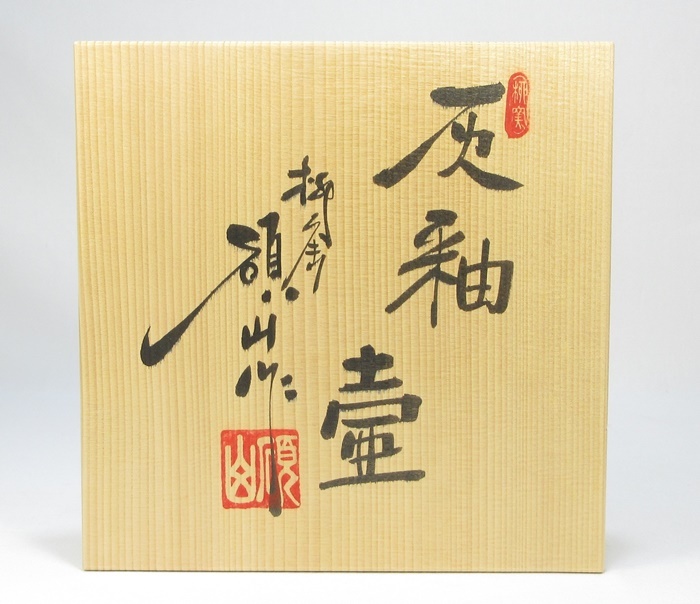 灰釉
壷
柳窯
山作
柳窯
山